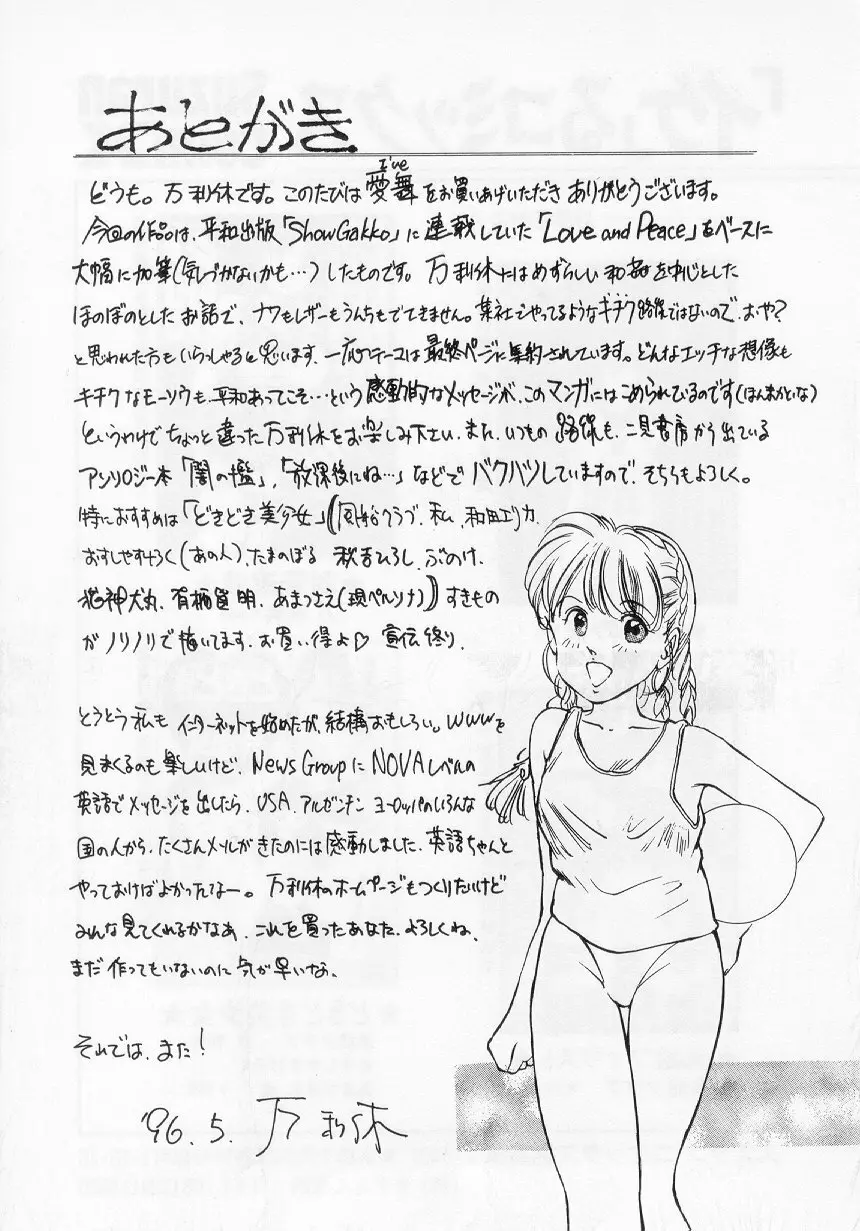 あとがき
どうも。万利休です。このたびは愛舞(I've)をお買いあげいただき ありがとうございます。
今回の作品は、平和出版「Show Gakko」に連載していた「Love and Peace」をベースに
大幅に加筆(気づかないかも…)したものです。万利休にはめずらしい和姦を中心とした
ほのぼのとしたお話で、ナワもレザーもうんちもでてきません。某社でやってるようなキチク路線ではないので、おや?
と思われた方もいらっしゃると思います、一応テーマは最終ページに集約されています。どんなエッチな想像も
キチクなモーソウも、平和あってこそ…という感動的なメッセージが、このマンガにはこめられているのです(ほんまかいな)
というわけでちょっと違った万利休をお楽しみ下さい、また、いつもの路線も、二見書房から出ている
アンソロジー本「闇の檻」,「放課後にね…」などでバクハツしていますので、そちらもよろしく。
特におすすめは「どきどき美少女」(風船クラブ、私、和田エリカ、
おすしやすすろく(あの人)、たまのぼる 秋吉ひろし、ぶのけ、
犬神犬丸、有栖 明、あまつさえ(現ペルソナ))すきもの
がノリノリで描いてます、お買い得よ♡ 宣伝終り、
とうとう私もインターネットを始めたが、結構おもしろい。WWWを
見まくるのも楽しいけど、News GroupにNOVAレベルの
英語でメッセージを出したら、USA、アルゼンチン ヨーロッパのいろんな
国の人から、たくさんメールがきたのには感動しました、英語ちゃんと
やっておけばよかったなー。万利休のホームページもつくりたいけど
みんな見てくれるかなあ、これを買ったあなた、よろしくね、
まだ作ってもいないのに気が早いな、
それでは、また!
'96.5. 万利休